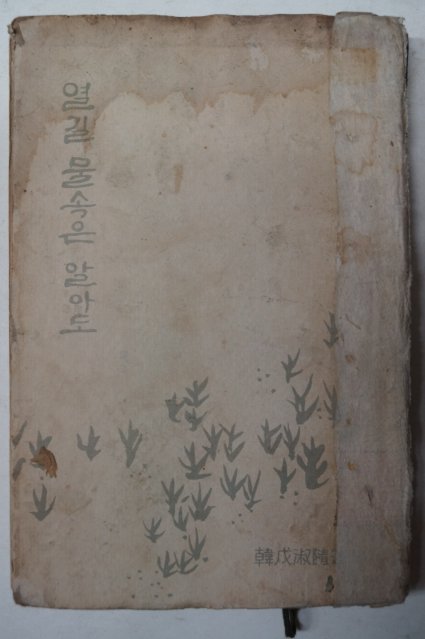 열길 물속은 알아도
韓戊淑